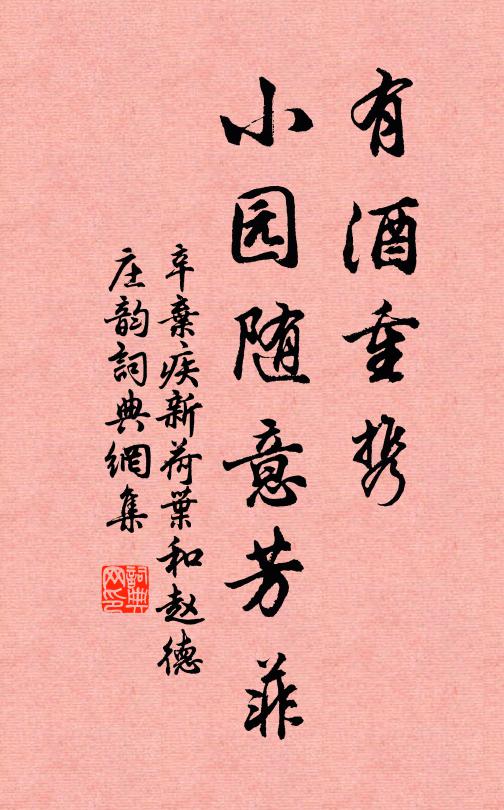 有酒重携
小园随意芳菲
辛棄疾新荷葉和赵德
庄韵詞典網集
詞典
网印